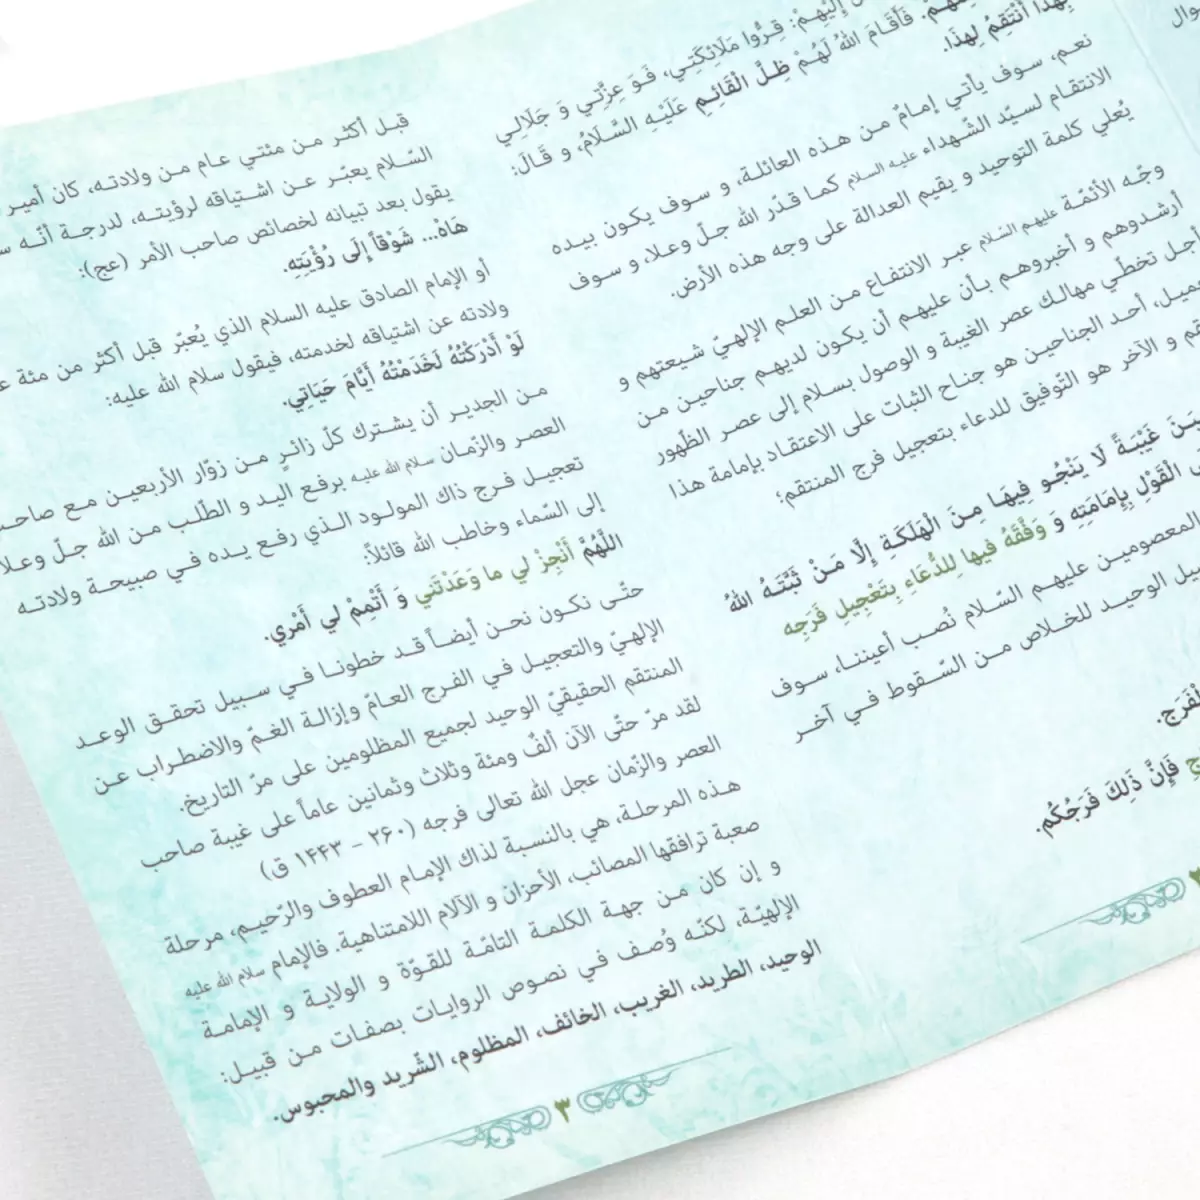 وال
بِهَذَا أَنْتَقِمُ لِهَذَا.
إِلَيْهِمْ: قِرُّوا مَلَائِكَتِي، فَوَ عِزَّتِي وَ جَلَالِي
فَأَقَامَ اللهُ لَهُمْ ظِلَّ الْقَائِمِ عَلَيْهِ السَّلَامُ، وَ قَالَ:
نعم، سوف يأتي إمامٌ من هذه العائلة، و سوف يكون بيده
الانتقام لسيّد الشّهداء عليه السلام كما قدّر الله جلّ وعلا، و سوف
يُعلي كلمة التوحيد و يقيم العدالة على وجه هذه الأرض.
وجّه الأئمّة عليهم السّلام عبر الانتفاع من العلم الإلهيّ شيعتهم و
أرشدوهم و أخبروهم بأن عليهم أن يكون لديهم جناحين من
أجل تخطّي مهالك عصر الغيبة و الوصول بسلام إلى عصر الظّهور
أحد الجناحين هو جناح الثبات على الاعتقاد بإمامة هذا
و الآخر هو التّوفيق للدعاء بتعجيل فرج المنتقم؛
غَيْبَةً لَا يَنْجُو فِيهَا مِنَ الْهَلَكَةِ إِلَّا مَنْ ثَبَّتَهُ اللهُ
الْقَوْلِ بِإِمَامَتِهِ وَ وَفَّقَهُ فِيهَا لِلدُّعَاءِ بِتَعْجِيلِ فَرَجِهِ
المعصومين عليهم السّلام نُصب أعيننا، سوف
الوحيد للخلاص من السّقوط في آخر
فَإِنَّ ذَلِكَ فَرَجُكُم.
قبل أكثر من مئتي عام من ولادته، كان أمير
السّلام يعبّر عن اشتياقه لرؤيته، لدرجة أنّه
يقول بعد تبيانه لخصائص صاحب الأمر (عج):
هَاهْ... شَوْقاً إِلَى رُؤْيَتِهِ.
أو الإمام الصادق عليه السلام الذي يُعبّر قبل أكثر من مئة
ولادته عن اشتياقه لخدمته، فيقول سلام الله عليه:
لَوْ أَدْرَكْتُهُ لَخَدَمْتُهُ أَيَّامَ حَيَاتِي.
من الجدير أن يشترك كلّ زائرٍ من زوّار الأربعين مع
العصر والزّمان سلام الله عليه برفع اليد و الطّلب من الله جلّ وعلا
تعجيل فرج ذاك المولود الذي رفع يده في صبيحة ولادته
إلى السّماء وخاطب الله قائلاً:
اللَّهُمَّ أَنْجِزْ لي ما وَعَدْتَني وَ أَتْمِمْ لي أَمْري.
حتّى نكون نحن أيضاً قد خطونا في سبيل تحقق الوعد
الإلهيّ والتعجيل في الفرج العامّ وإزالة الغمّ والاضطراب عن
المنتقم الحقيقيّ الوحيد لجميع المظلومين على مرّ التاريخ.
لقد مرّ حتّى الآن ألفٌ ومئة وثلاث وثمانين عاماً على غيبة صاحب
العصر والزّمان عجل الله تعالى فرجه (۲۶۰ - ۱۴۴۳ ق)
هذه المرحلة، هي بالنسبة لذاك الإمام العطوف والرّحيم، مرحلة
صعبة ترافقها المصائب، الأحزان و الآلام اللامتناهية. فالإمام سلام الله عليه
و إن كان من جهة الكلمة التامّة للقوّة و الولاية و الإمامة
الإلهيّة، لكنّه وُصف في نصوص الروايات بصفات من قبيل:
الوحيد، الطريد، الغريب، الخائف، المظلوم، الشّريد والمحبوس.
۳